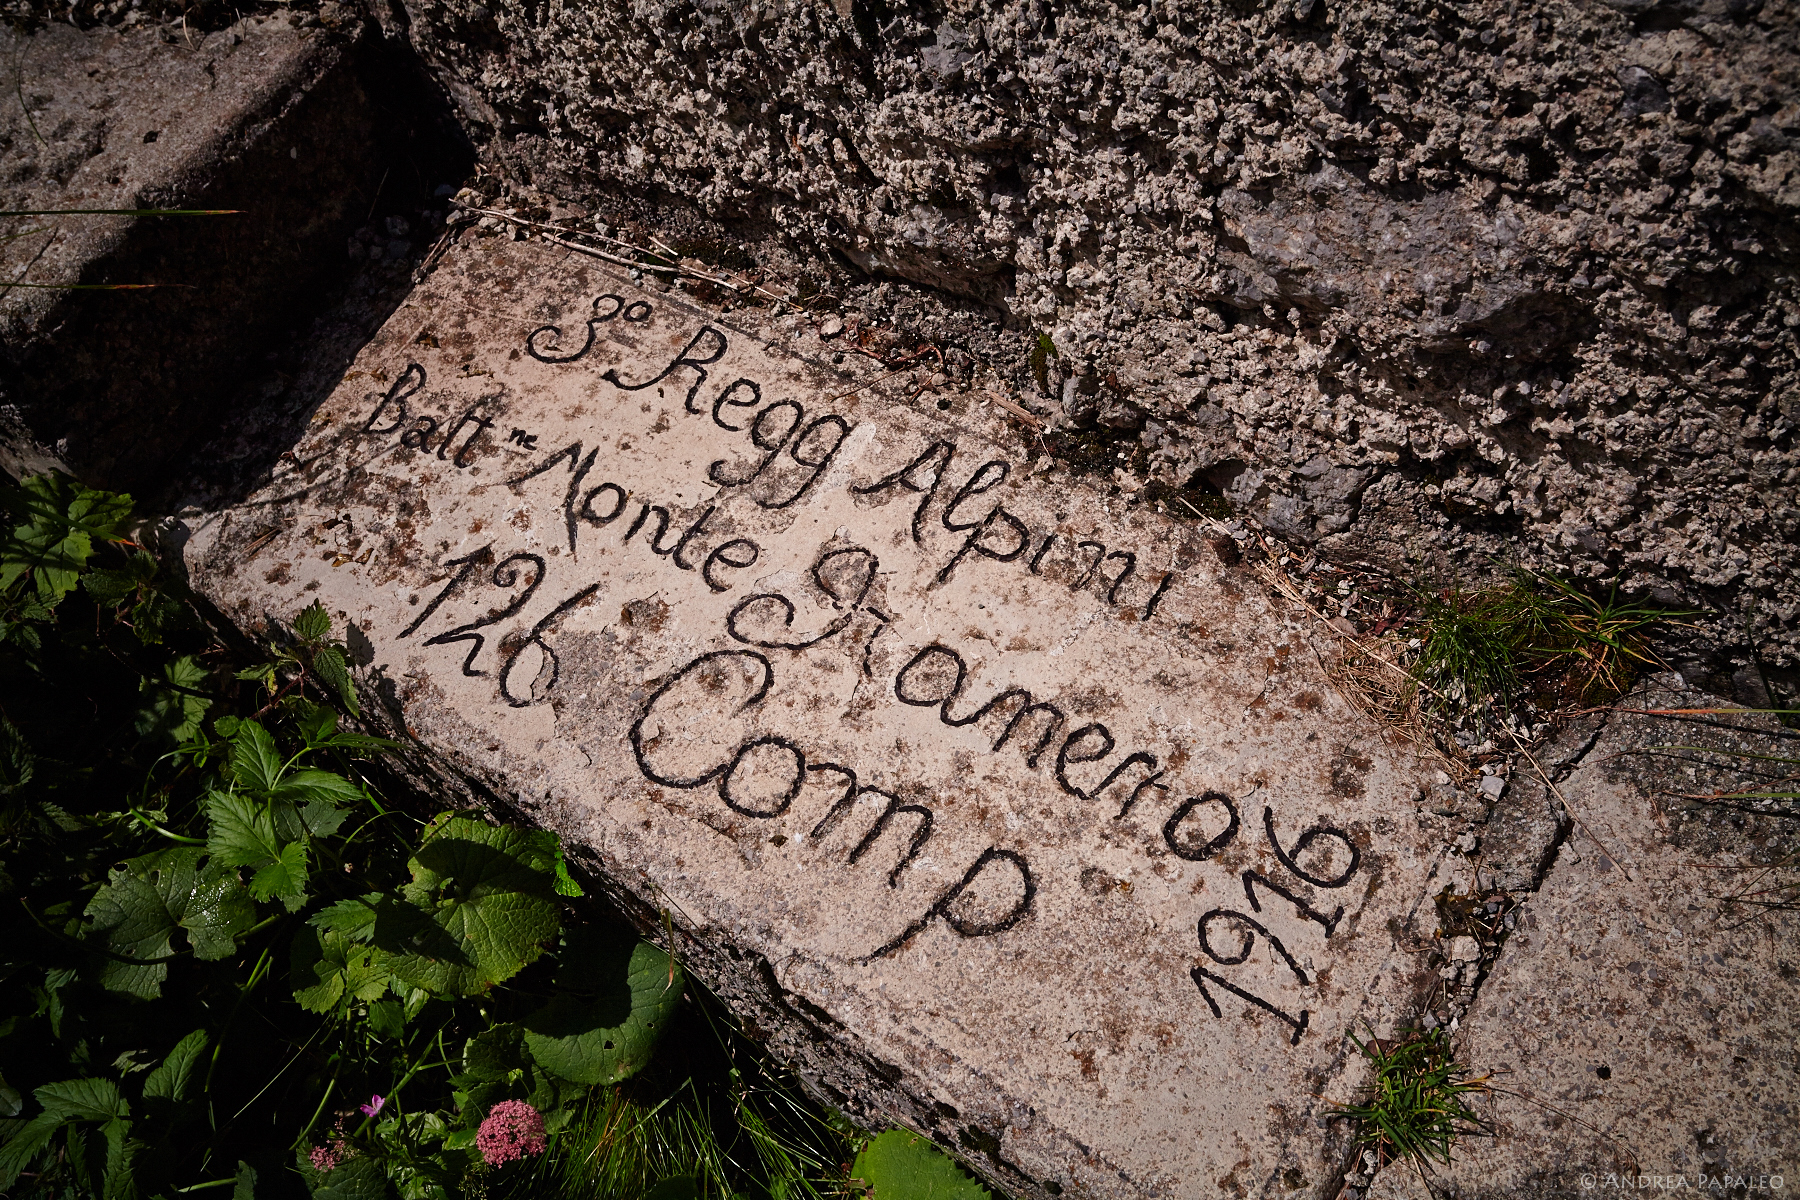 3º Regg Alpini
Batt ne Monte Granero
126 Comp
1916
© ANDREA PAPALEO